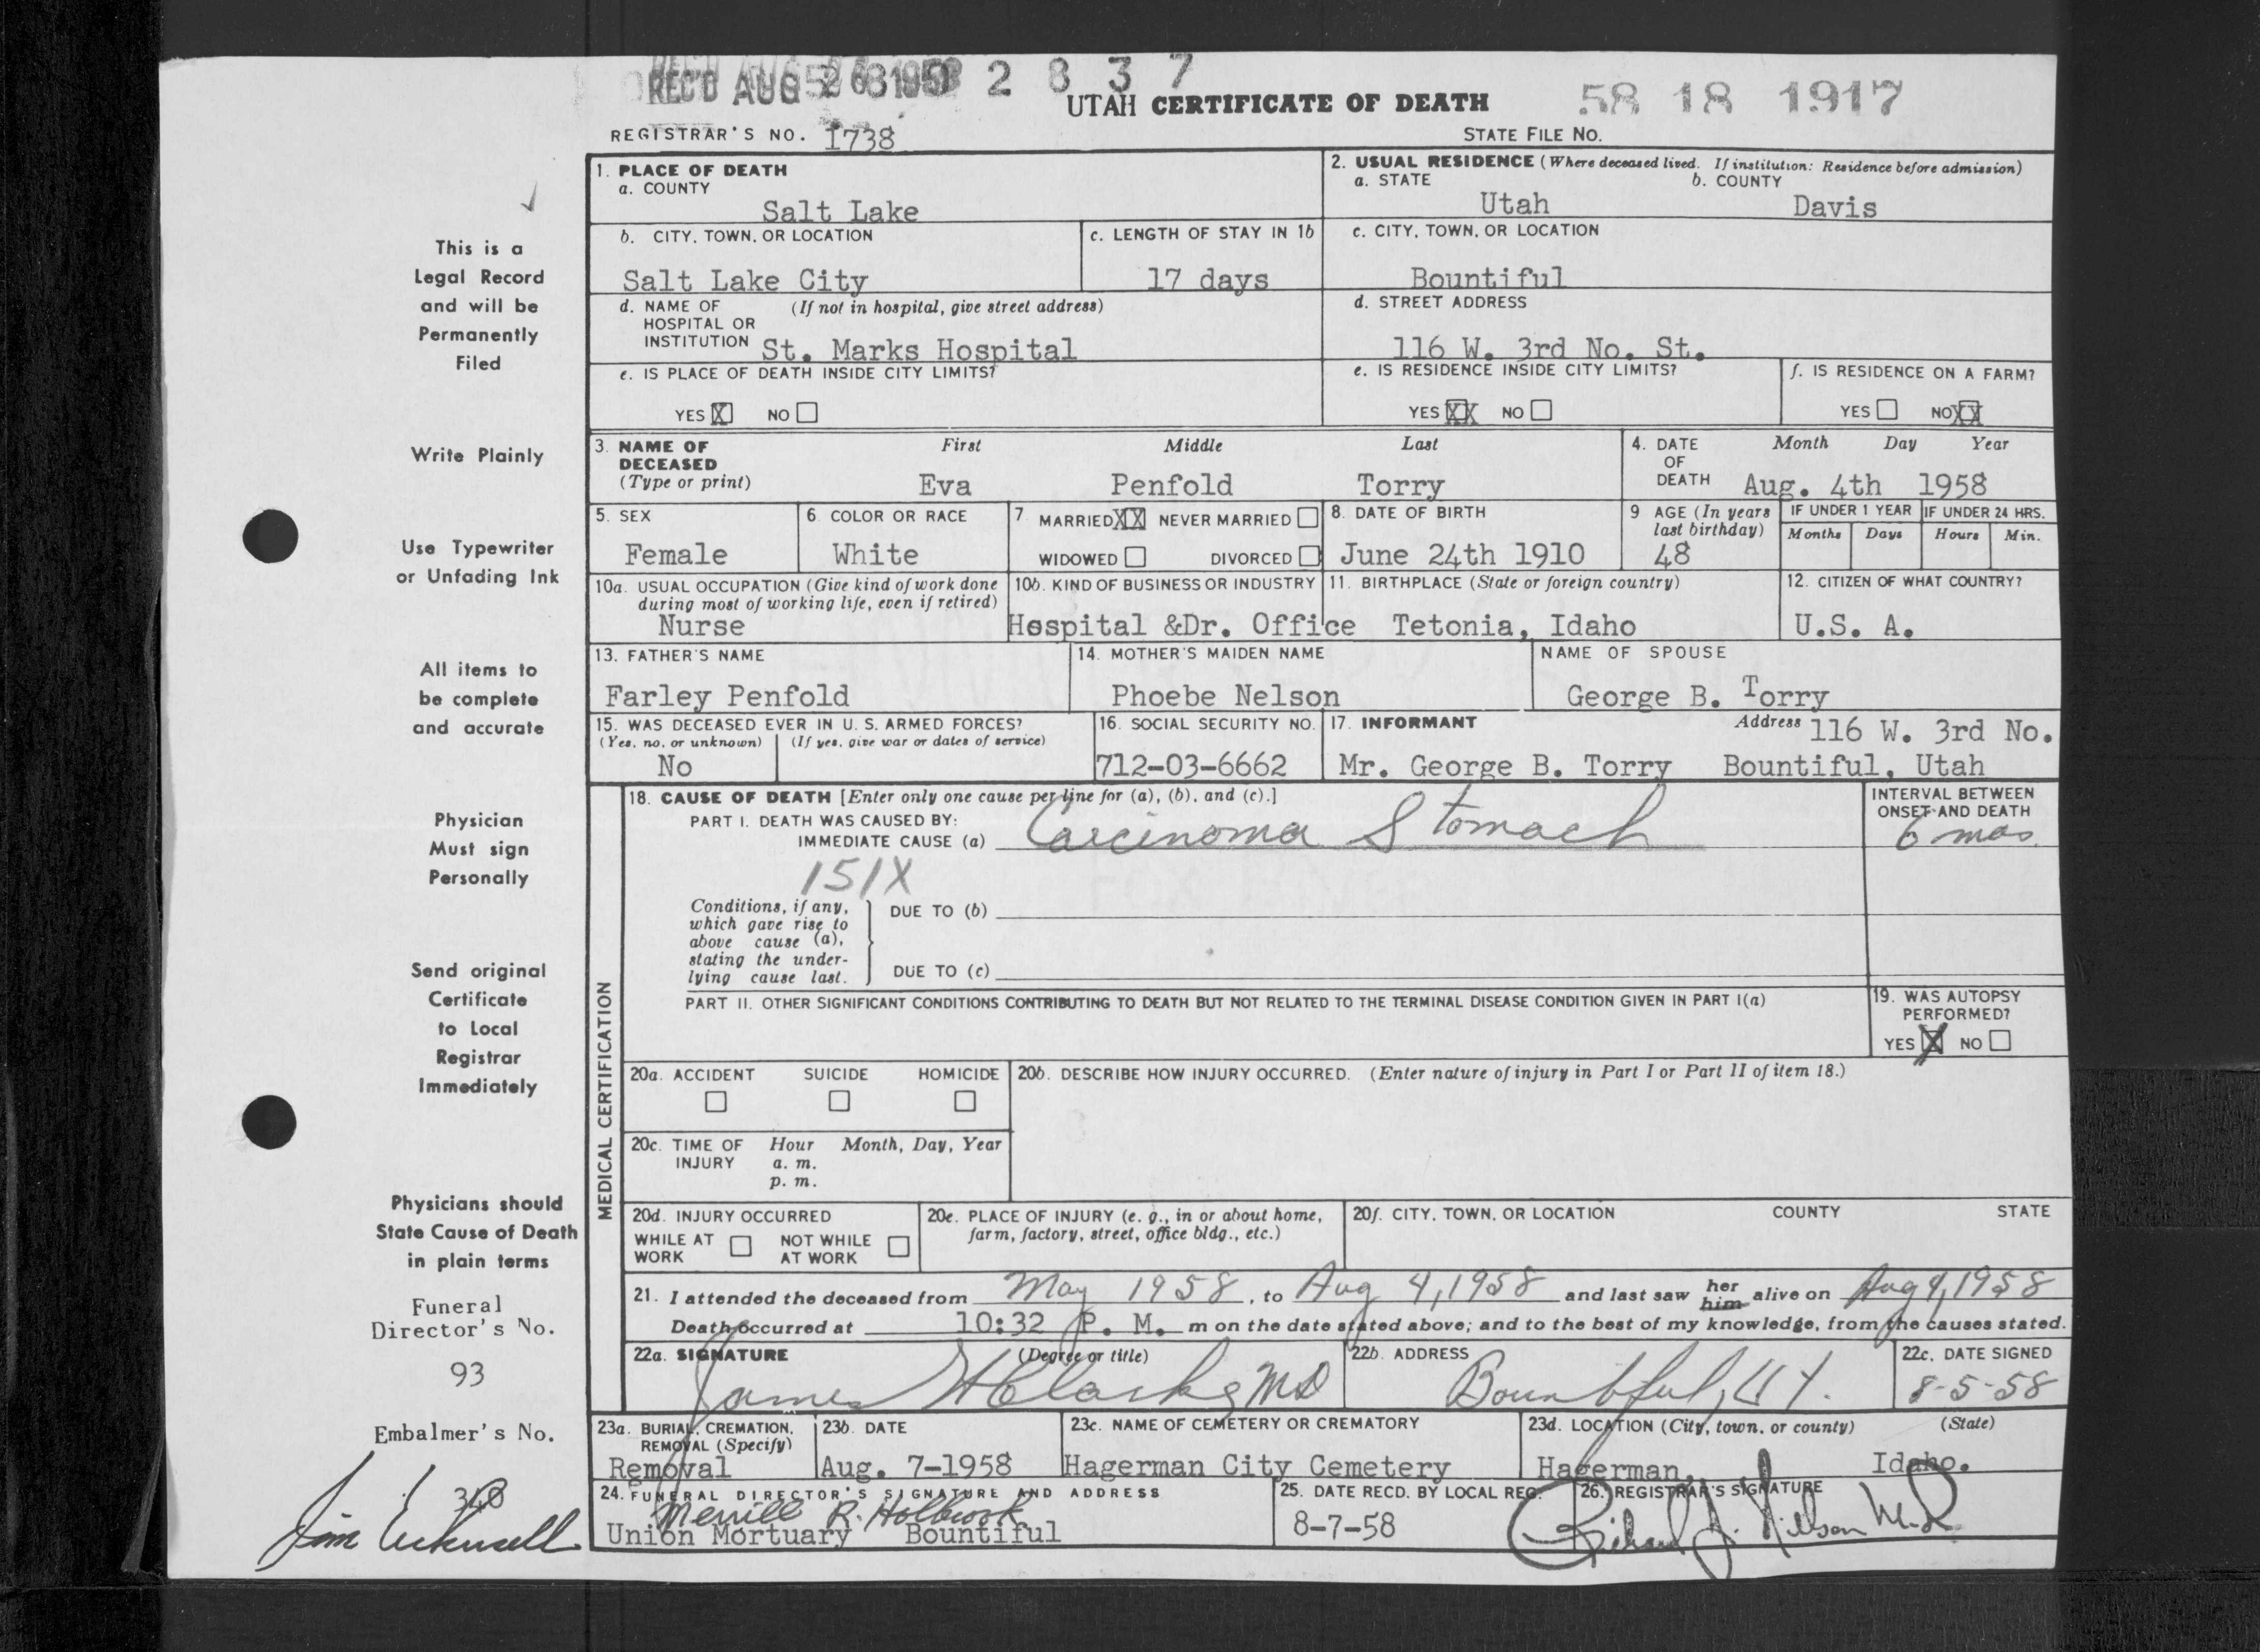 REC'D AUG 2 8 3 7
UTAH CERTIFICATE OF DEATH
58 18 1917
REGISTRAR'S NO. 1738
STATE FILE NO.
This is a
Legal Record
and will be
Permanently
Filed
Write Plainly
Use Typewriter
or Unfading Ink
All items to
be complete
and accurate
Physician
Must sign
Personally
Send original
Certificate
to Local
Registrar
Immediately
Physicians should
State Cause of Death
in plain terms
Funeral
Director's No.
93
Embalmer's No.
Jim
1. PLACE OF DEATH
a. COUNTY
Salt Lake
2. USUAL RESIDENCE (Where deceased lived. If institution: Residence before admission)
a. STATE b. COUNTY
Utah Davis
b. CITY, TOWN, OR LOCATION
Salt Lake City
c. LENGTH OF STAY IN 1b
17 days
c. CITY, TOWN, OR LOCATION
Bountiful
d. NAME OF (If not in hospital, give street address)
HOSPITAL OR
INSTITUTION St. Marks Hospital
d. STREET ADDRESS
116 W. 3rd No. St.
e. IS PLACE OF DEATH INSIDE CITY LIMITS?
YES X NO
e. IS RESIDENCE INSIDE CITY LIMITS?
YES XX NO
f. IS RESIDENCE ON A FARM?
YES NO XX
3. NAME OF First Middle Last
DECEASED
(Type or print) Eva Penfold Torry
4. DATE Month Day Year
OF
DEATH Aug. 4th 1958
5. SEX
Female
6. COLOR OR RACE
White
7 MARRIED XX NEVER MARRIED
WIDOWED DIVORCED
8. DATE OF BIRTH
June 24th 1910
9 AGE (In years
last birthday)
48
IF UNDER 1 YEAR
Months Days
IF UNDER 24 HRS.
Hours Min.
10a. USUAL OCCUPATION (Give kind of work done
during most of working life, even if retired)
Nurse
10b. KIND OF BUSINESS OR INDUSTRY
Hospital &Dr. Office
11. BIRTHPLACE (State or foreign country)
Tetonia, Idaho
12. CITIZEN OF WHAT COUNTRY?
U.S. A.
13. FATHER'S NAME
Farley Penfold
14. MOTHER'S MAIDEN NAME
Phoebe Nelson
NAME OF SPOUSE
George B. Torry
15. WAS DECEASED EVER IN U. S. ARMED FORCES?
(Yes, no, or unknown) (If yes, give war or dates of service)
No
16. SOCIAL SECURITY NO.
712-03-6662
17. INFORMANT Address 116 W. 3rd No.
Mr. George B. Torry Bountiful, Utah
MEDICAL CERTIFICATION
18. CAUSE OF DEATH [Enter only one cause per line for (a), (b), and (c).]
PART I. DEATH WAS CAUSED BY:
IMMEDIATE CAUSE (a) Carcinoma Stomach
INTERVAL BETWEEN
ONSET AND DEATH
6 mos.
151X
Conditions, if any,
which gave rise to
above cause (a),
stating the under-
lying cause last.
DUE TO (b)
DUE TO (c)
PART II. OTHER SIGNIFICANT CONDITIONS CONTRIBUTING TO DEATH BUT NOT RELATED TO THE TERMINAL DISEASE CONDITION GIVEN IN PART I(a)
19. WAS AUTOPSY
PERFORMED?
YES X NO
20a. ACCIDENT SUICIDE HOMICIDE
20b. DESCRIBE HOW INJURY OCCURRED. (Enter nature of injury in Part I or Part II of item 18.)
20c. TIME OF Hour Month, Day, Year
INJURY a. m.
p. m.
20d. INJURY OCCURRED
WHILE AT NOT WHILE
WORK AT WORK
20e. PLACE OF INJURY (e. g., in or about home,
farm, factory, street, office bldg., etc.)
20f. CITY, TOWN, OR LOCATION COUNTY STATE
21. I attended the deceased from May 1958, to Aug 4, 1958 and last saw her him alive on Aug 4, 1958
Death occurred at 10:32 P. M. m on the date stated above; and to the best of my knowledge, from the causes stated.
22a. SIGNATURE (Degree or title)
James H Clarke MD
22b. ADDRESS
Bountiful, Ut.
22c. DATE SIGNED
8-5-58
23a. BURIAL, CREMATION,
REMOVAL (Specify)
Removal
23b. DATE
Aug. 7-1958
23c. NAME OF CEMETERY OR CREMATORY
Hagerman City Cemetery
23d. LOCATION (City, town, or county) (State)
Hagerman, Idaho.
24. FUNERAL DIRECTOR'S SIGNATURE AND ADDRESS
Merrill R. Holbrook
Union Mortuary Bountiful
25. DATE RECD. BY LOCAL REG.
8-7-58
26. REGISTRAR'S SIGNATURE
Richard J. Nelson M.D.